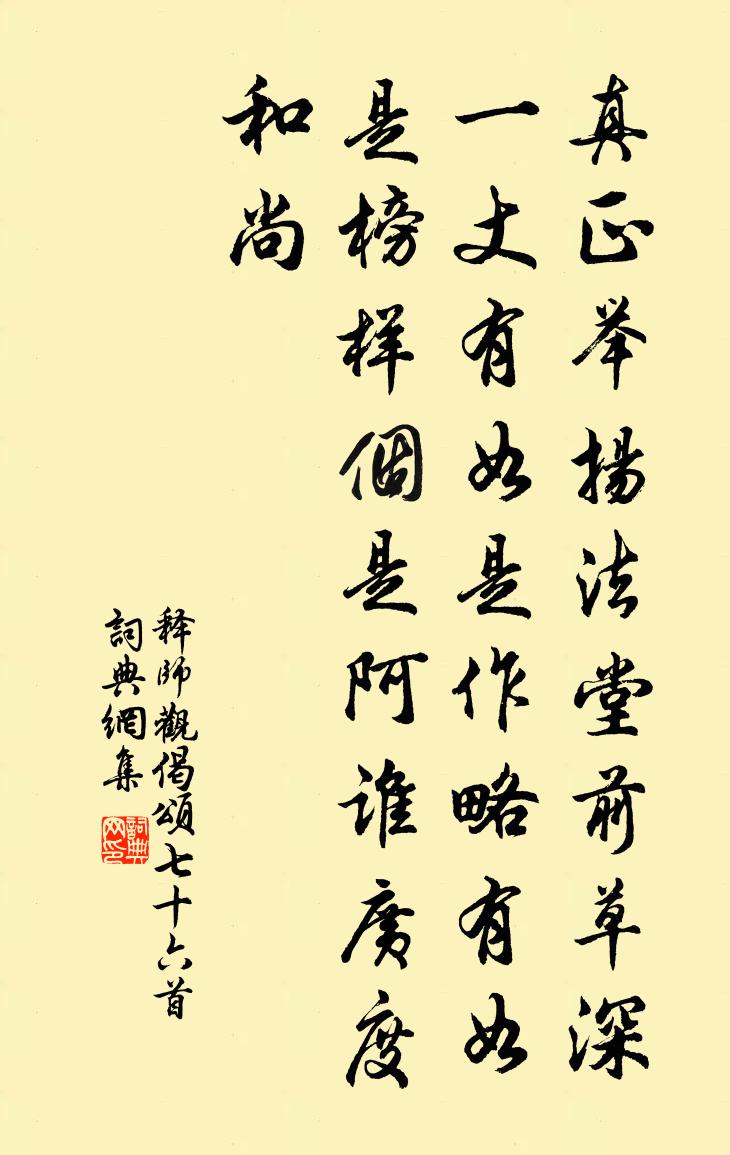 真正举揚法堂前草深
一丈有如是作略有如
是榜样個是阿谁廣度
和尚
释師觀偈頌七十六首
詞典網集
詞典网印